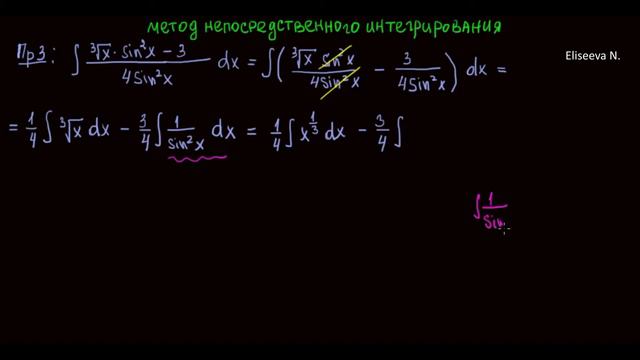 метод непосредственного интегрирования
Eliseeva N.
Пр3: ∫ (∛x · sin²x − 3)/(4sin²x) dx = ∫( (∛x · sin²x)/(4sin²x) − 3/(4sin²x) ) dx =
= 1/4 ∫ ∛x dx − 3/4 ∫ 1/(sin²x) dx = 1/4 ∫ x^(1/3) dx − 3/4 ∫
∫ 1/sin